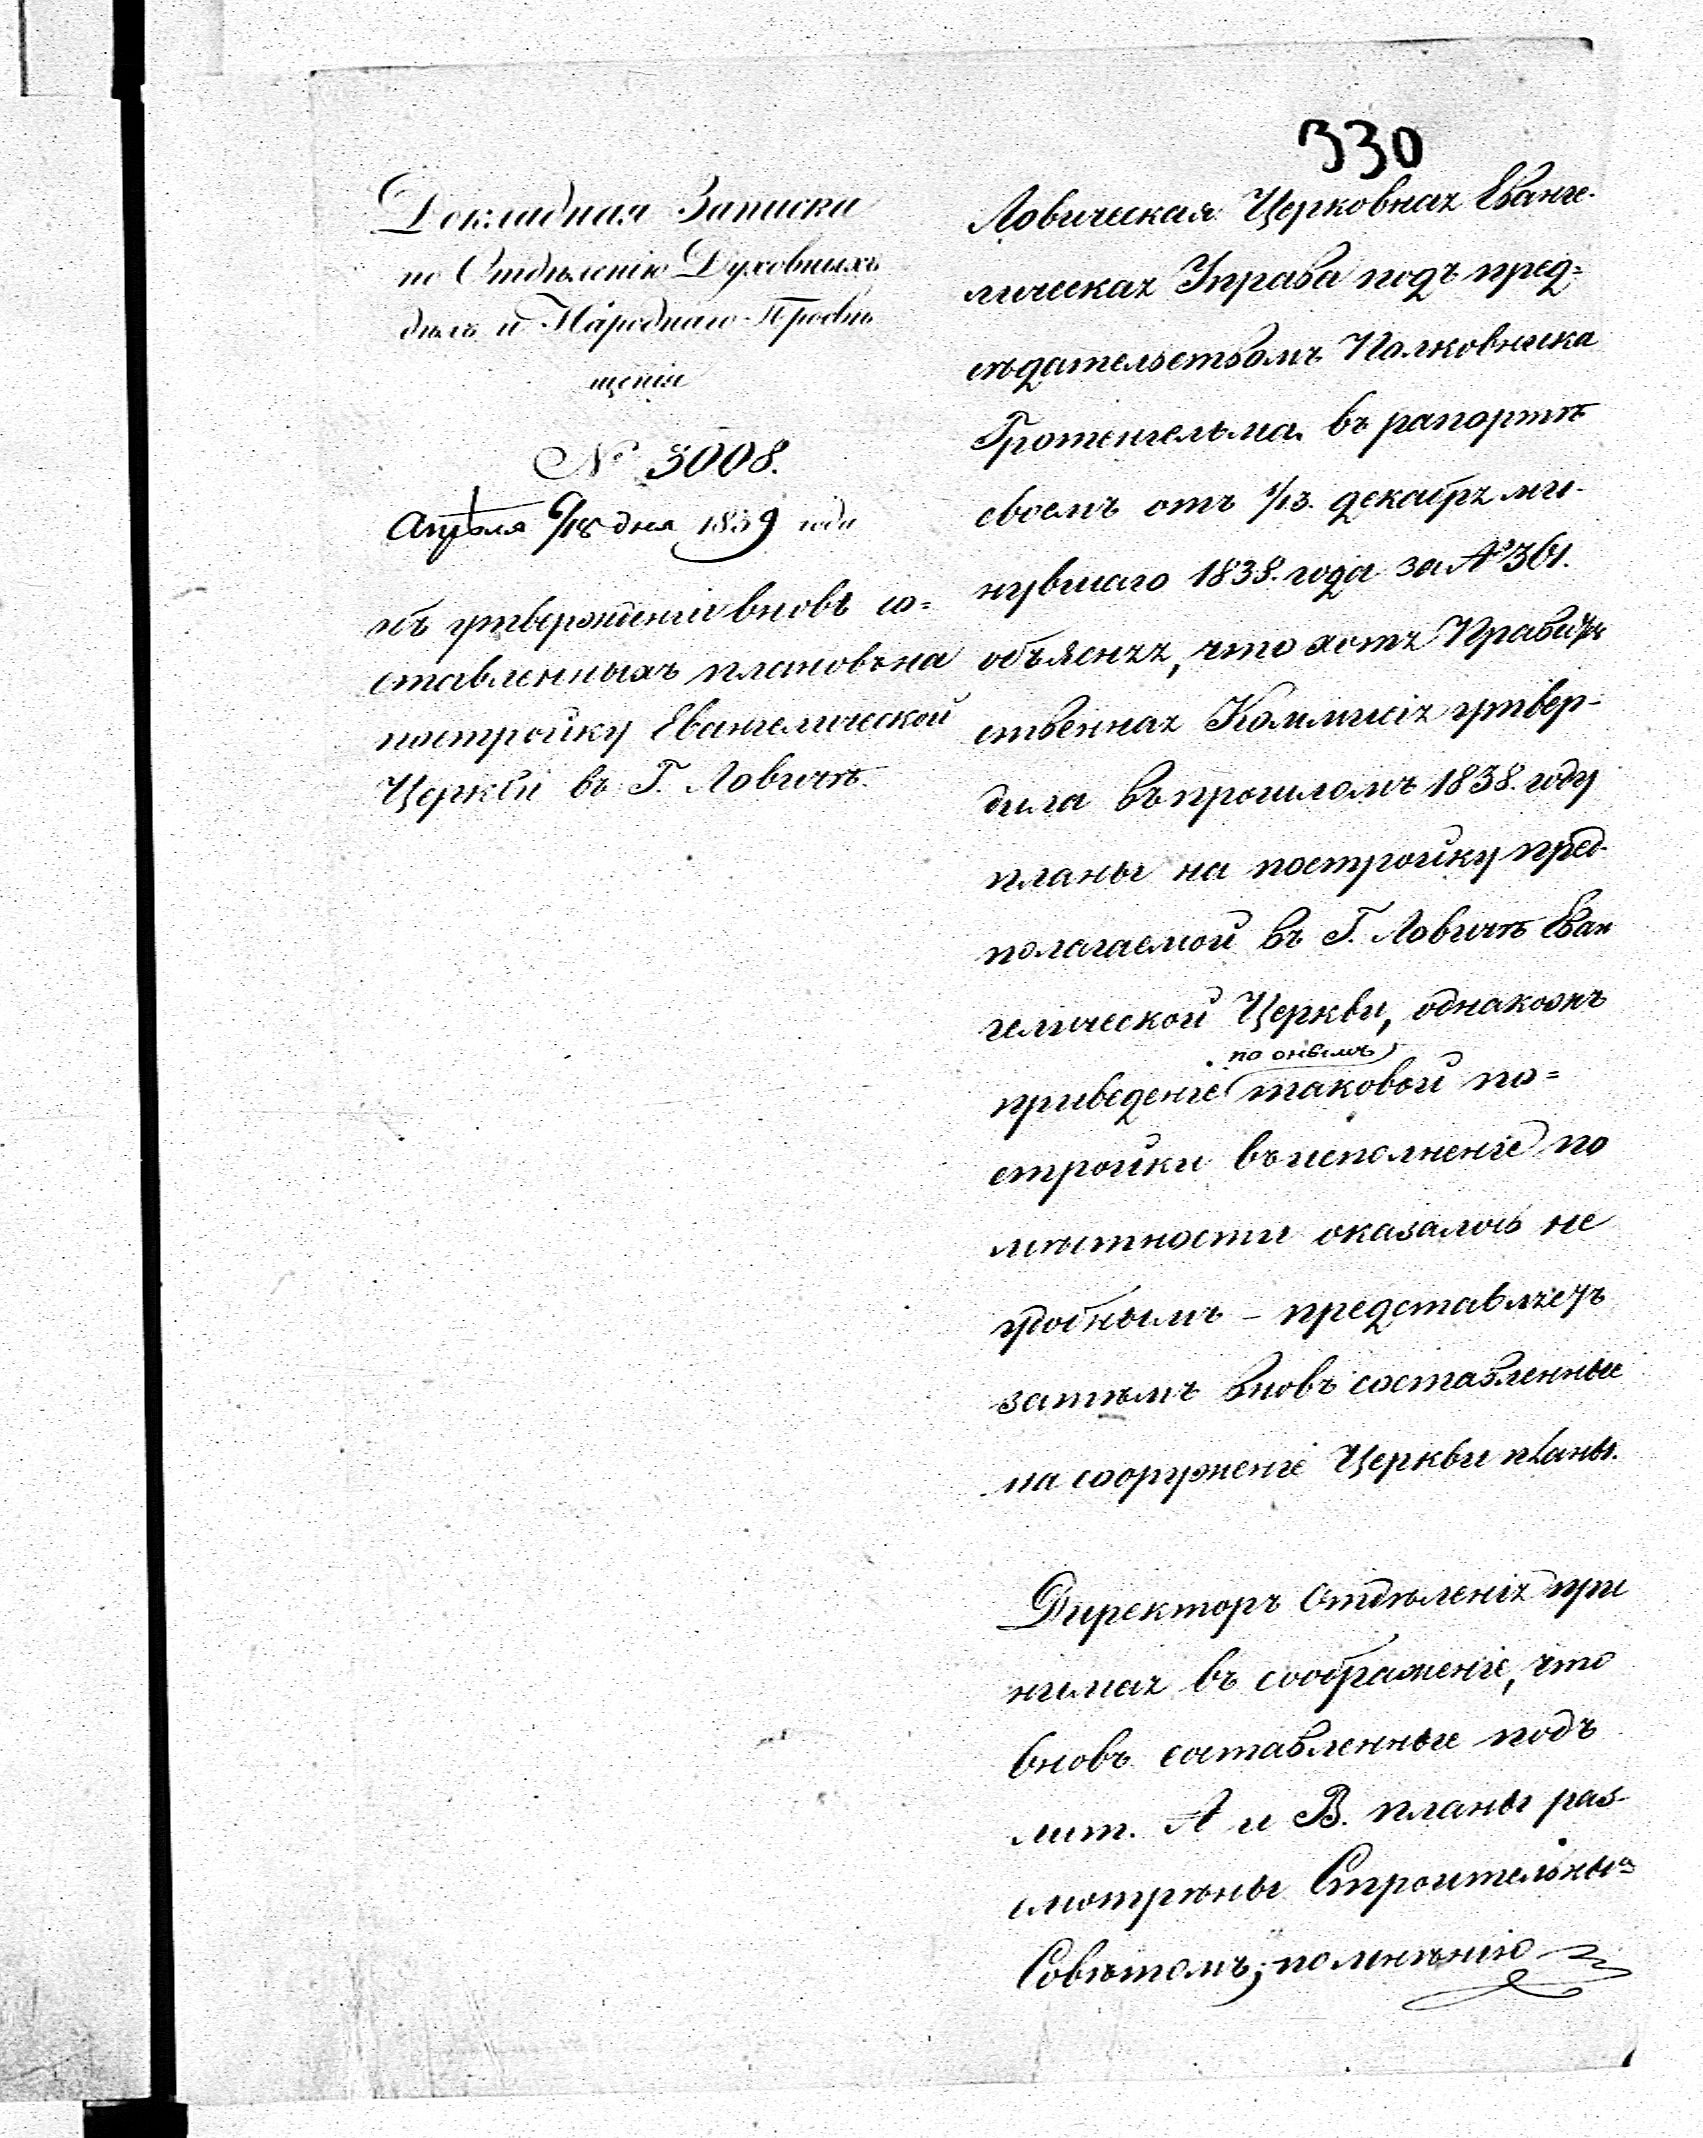 330
Докладная Записка
по Отдѣленію Духовныхъ
дѣлъ и Народнаго Просвѣ
щенія
№ 3008.
Апрѣля 6/18 дня 1839 года
объ утвержденіи вновь со=
ставленныхъ плановъ на
постройку Евангелической
Церкви въ Г. Ловичѣ.
Ловическая Церковная Еванге-
лическая Управа подъ пред=
сѣдательствомъ Полковника
Гротенгельма въ рапортѣ
своемъ отъ 1/13. декабря ми-
нувшаго 1838. года за № 361.
объясняя, что хотя Правитель
ственная Коммисія утвер-
дила въ прошломъ 1838. году
планы на постройку пред-
полагаемой въ Г. Ловичѣ Еван
гелической Церкви, однакожъ
по онымъ
приведеніе таковой по=
стройки въ исполненіе по
мѣстности оказалось не
удобнымъ – представляетъ
затѣмъ вновь составленные
на сооруженіе Церкви планы.
Директоръ Отдѣленія при
нимая въ соображеніе, что
вновь составленные подъ
лит. А и В. планы раз-
смотрѣны Строительнымъ
Совѣтомъ, по мнѣнію